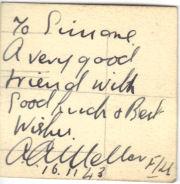 To Simone
A very good
friend with
Good Luck & Best
Wishes.
16.11.43